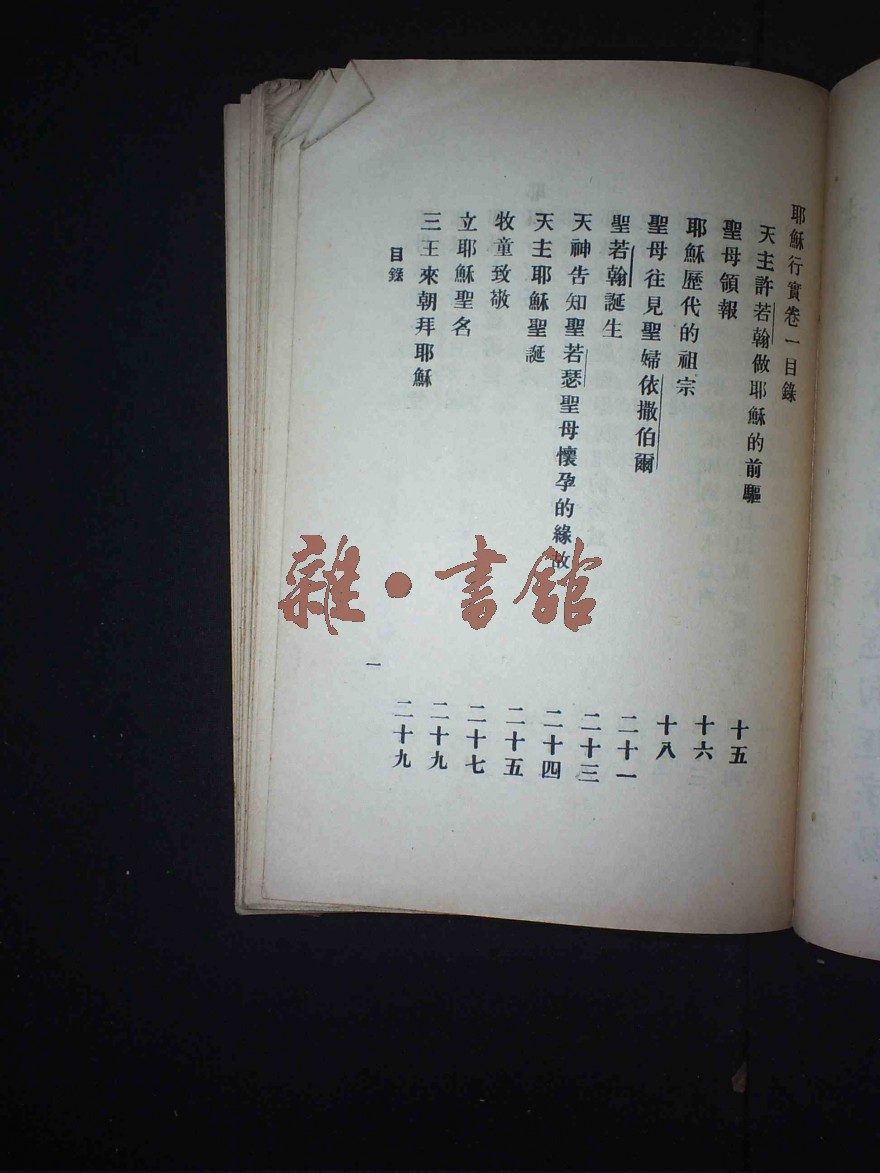 耶穌行實卷一目錄
天主許若翰做耶穌的前驅 十五
聖母領報 十六
耶穌歷代的祖宗 十八
聖母往見聖婦依撒伯爾 二十一
聖若翰誕生 二十三
天神告知聖若瑟聖母懷孕的緣故 二十四
天主耶穌聖誕 二十五
牧童致敬 二十七
立耶穌聖名 二十九
三王來朝拜耶穌 二十九
目錄 一
雜·書館